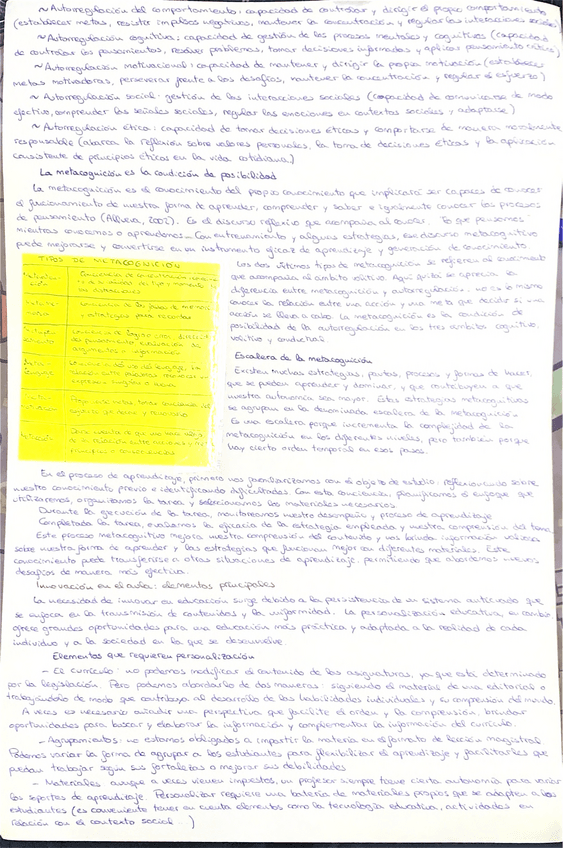 ~ Autorregulación del comportamiento: capacidad de controlar y dirigir el propio comportamiento
(establecer metas, resistir impulsos negativos, mantener la concentración y regular las interacciones sociales)
~ Autorregulación cognitiva: capacidad de gestión de los procesos mentales y cognitivos (capacidad
de controlar los pensamientos, resolver problemas, tomar decisiones informadas y aplicar pensamiento crítico)
~ Autorregulación motivacional: capacidad de mantener y dirigir la propia motivación (establecer
metas motivadoras, perseverar frente a los desafíos, mantener la concentración y regular el esfuerzo)
~ Autorregulación social: gestión de las interacciones sociales (capacidad de comunicarse de modo
efectivo, comprender las señales sociales, regular las emociones en contextos sociales y adaptarse)
~ Autorregulación ética: capacidad de tomar decisiones éticas y comportarse de manera moralmente
responsable (abarca la reflexión sobre valores personales, la toma de decisiones éticas y la aplicación
consistente de principios éticos en la vida cotidiana)
La metacognición es la condición de posibilidad
La metacognición es el conocimiento del propio conocimiento que implicaría ser capaces de conocer
el funcionamiento de nuestra forma de aprender, comprender y saber e igualmente conocer los procesos
de pensamiento (Allueva, 2002). Es el discurso reflexivo que acompaña al conocer. Lo que pensamos
mientras conocemos o aprendemos. Con entrenamiento y algunas estrategias, ese discurso metacognitivo
puede mejorarse y convertirse en un instrumento eficaz de aprendizaje y generación de conocimiento
TIPOS DE METACOGNICIÓN
Los dos últimos tipos de metacognición se refieren al conocimiento
que acompaña al ámbito volitivo. Aquí quizá se aprecia la
diferencia entre metacognición y autorregulación, no es lo mismo
conocer la relación entre una acción y una meta que decidir si una
acción se lleva a cabo. La metacognición es la condición de
posibilidad de la autorregulación en los tres ámbitos: cognitivo,
volitivo y conductual
Escalera de la metacognición
Existen muchas estrategias, pautas, procesos y formas de hacer,
que se pueden aprender y dominar, y que contribuyen a que
nuestra autonomía sea mayor. Estas estrategias metacognitivas
se agrupan en la denominada escalera de la metacognición
Es una escalera porque incrementa la complejidad de la
metacognición en los diferentes niveles, pero también porque
hay cierto orden temporal en esos pasos.
En el proceso de aprendizaje, primero nos familiarizamos con el objeto de estudio, reflexionando sobre
nuestro conocimiento previo e identificando dificultades. Con esta conciencia, planificamos el enfoque que
utilizaremos, organizamos la tarea y seleccionamos los materiales necesarios
Durante la ejecución de la tarea, monitoreamos nuestro desempeño y proceso de aprendizaje
Completada la tarea, evaluamos la eficacia de la estrategia empleada y nuestra comprensión del tema
Este proceso metacognitivo mejora nuestra comprensión del contenido y nos brinda información valiosa
sobre nuestra forma de aprender y las estrategias que funcionan mejor con diferentes materiales. Este
conocimiento puede transferirse a otras situaciones de aprendizaje, permitiendo que abordemos nuevos
desafíos de manera más efectiva.
Innovación en el aula: elementos principales
La necesidad de innovar en educación surge debido a la persistencia de un sistema anticuado que
se enfoca en la transmisión de contenidos y la uniformidad. La personalización educativa, en cambio,
ofrece grandes oportunidades para una educación más práctica y adaptada a la realidad de cada
individuo y a la sociedad en la que se desenvuelve.
Elementos que requieren personalización
- El currículo: no podemos modificar el contenido de las asignaturas, ya que está determinado
por la legislación. Pero podemos abordarlo de dos maneras: siguiendo el material de una editorial o
trabajándolo de modo que contribuya al desarrollo de las habilidades individuales y su comprensión del mundo.
A veces es necesario añadir una perspectiva que facilite el orden y la comprensión, brindar
oportunidades para buscar y elaborar la información y complementar la información del currículo.
- Agrupamientos: no estamos obligados a impartir la materia en el formato de lección magistral
Podemos variar la forma de agrupar a los estudiantes para flexibilizar el aprendizaje y facilitarles que
puedan trabajar según sus fortalezas o mejorar sus debilidades
- Materiales: aunque a veces vienen impuestos, un profesor siempre tiene cierta autonomía para variar
los soportes de aprendizaje. Personalizar requiere una batería de materiales propios que se adapten a los
estudiantes (es conveniente tener en cuenta elementos como la tecnología educativa, actividades en
relación con el contexto social...)